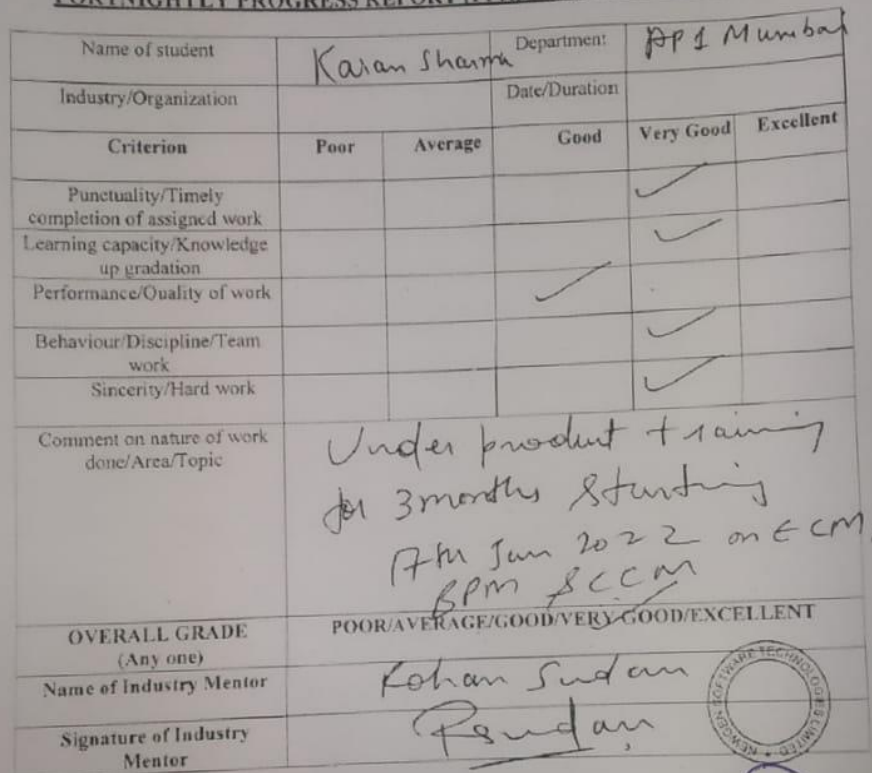 FORTNIGHTLY PROGRESS REPORT
Name of student Karan Sharma Department AP 1 Mumbai
Industry/Organization Date/Duration
Criterion Poor Average Good Very Good Excellent
Punctuality/Timely
completion of assigned work ✓
Learning capacity/Knowledge
up gradation ✓
Performance/Quality of work ✓
Behaviour/Discipline/Team
work ✓
Sincerity/Hard work ✓
Comment on nature of work
done/Area/Topic
Under product training
for 3 months Starting
17th Jan 2022 on ECM
BPM & CCM
OVERALL GRADE
(Any one)
POOR/AVERAGE/GOOD/VERY GOOD/EXCELLENT
Name of Industry Mentor Rohan Sudan
Signature of Industry
Mentor
Rsudan
NEWGEN SOFTWARE TECHNOLOGIES LIMITED